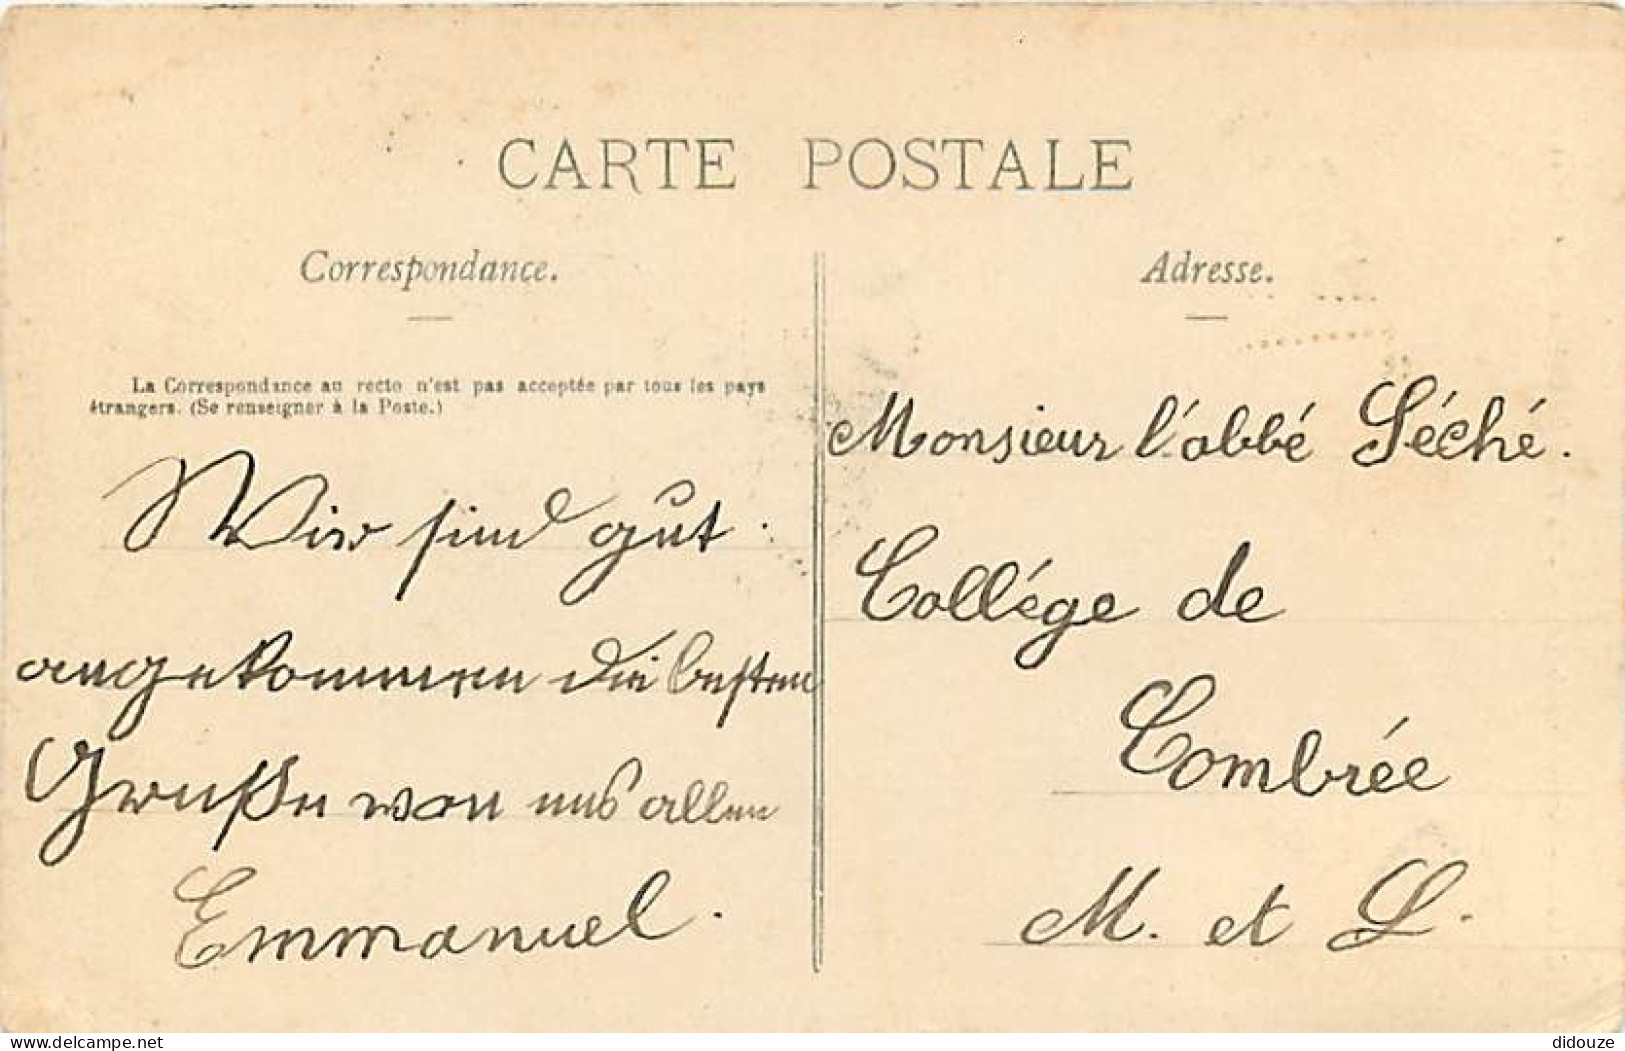 CARTE POSTALE
Correspondance.
La Correspondance au recto n'est pas acceptée par tous les pays
étrangers. (Se renseigner à la Poste.)
Wir sind gut
angekommen die besten
Grüße von uns allen
Emmanuel.
Adresse.
Monsieur l'abbé Séché.
Collége de
Combrée
M. et L.
delcampe.net
didouze